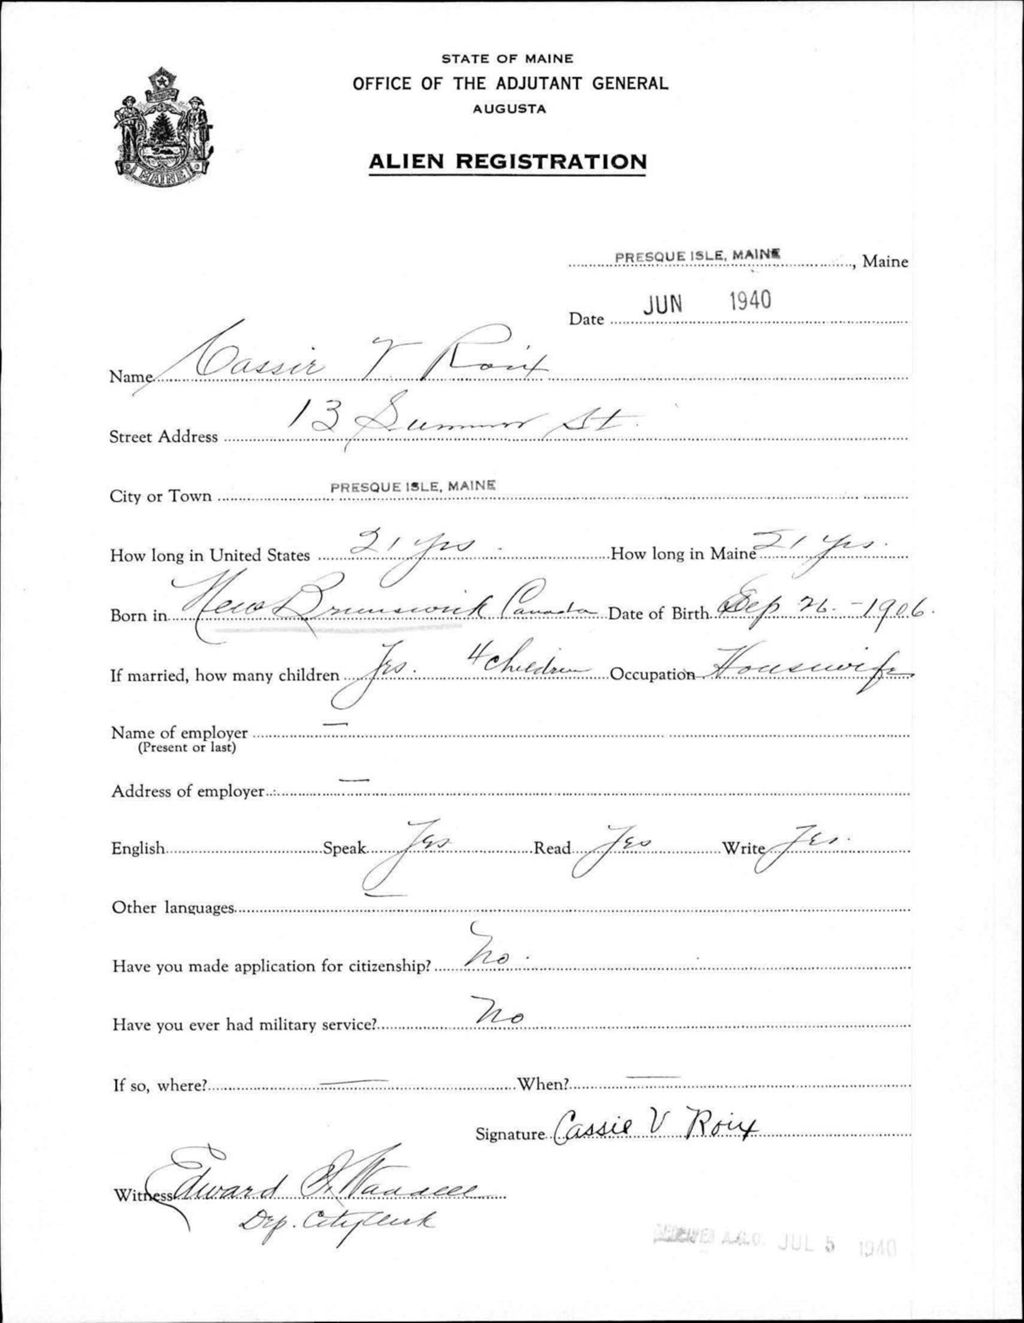 STATE OF MAINE
OFFICE OF THE ADJUTANT GENERAL
AUGUSTA
ALIEN REGISTRATION
MAINE
PRESQUE ISLE, MAINE, Maine
Date JUN 1940
Name Cassie V Roix
Street Address 13 Summer St.
City or Town PRESQUE ISLE, MAINE
How long in United States 21 yrs. How long in Maine 21 yrs.
Born in New Brunswick Canada Date of Birth Sep 26. - 1906.
If married, how many children Yes. 4 children Occupation Housewife
Name of employer —
(Present or last)
Address of employer —
English Speak Yes Read Yes Write Yes.
Other languages —
Have you made application for citizenship? No.
Have you ever had military service? No
If so, where? — When? —
Signature Cassie V Roix
Witness Edward
Dep. City Clerk
RECEIVED A.G.O. JUL 5 1940